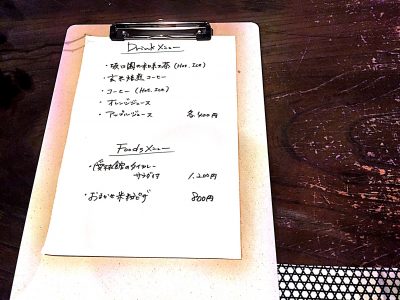 Drinkメニュー
・坂口園の和味の茶 (Hot. Ice)
・玄米焙煎コーヒー
・コーヒー (Hot. Ice)
・オレンジジュース
・アップルジュース 各400円
Foodsメニュー
のタイカレー
サラダ付 1,200円
・おまかせ米粉ピザ 800円